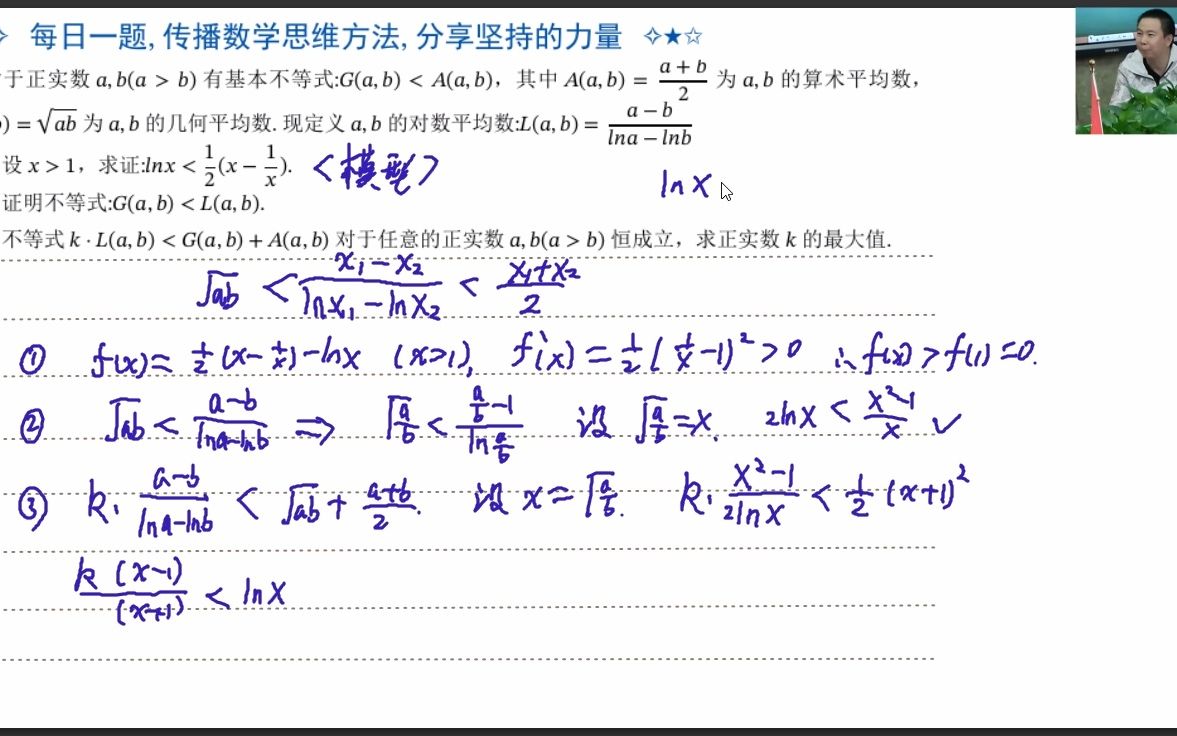 ✧ 每日一题, 传播数学思维方法, 分享坚持的力量 ✧★☆
于正实数 a, b(a > b) 有基本不等式:G(a, b) < A(a, b)，其中 A(a, b) = \frac{a + b}{2} 为 a, b 的算术平均数，
) = √ab 为 a, b 的几何平均数. 现定义 a, b 的对数平均数:L(a, b) = \frac{a − b}{lna − lnb}
设 x > 1，求证:lnx < \frac{1}{2}(x − \frac{1}{x}). <模型>
ln x
证明不等式:G(a, b) < L(a, b).
不等式 k · L(a, b) < G(a, b) + A(a, b) 对于任意的正实数 a, b(a > b) 恒成立，求正实数 k 的最大值.
√ab < \frac{x₁ − x₂}{ln x₁ − ln x₂} < \frac{x₁ + x₂}{2}
① f(x) = \frac{1}{2}(x − \frac{1}{x}) − ln x (x>1), f'(x) = \frac{1}{2}(\frac{1}{x} − 1)² > 0 ∴ f(x) > f(1) = 0.
② √ab < \frac{a−b}{lna−lnb} ⇒ √\frac{a}{b} < \frac{\frac{a}{b} − 1}{ln\frac{a}{b}} 设 √\frac{a}{b} = x. 2lnx < \frac{x²−1}{x} ✓
③ k · \frac{a−b}{lna−lnb} < √ab + \frac{a+b}{2}. 设 x = √\frac{a}{b}. k · \frac{x²−1}{2lnx} < \frac{1}{2}(x+1)²
\frac{k(x−1)}{(x+1)} < ln x